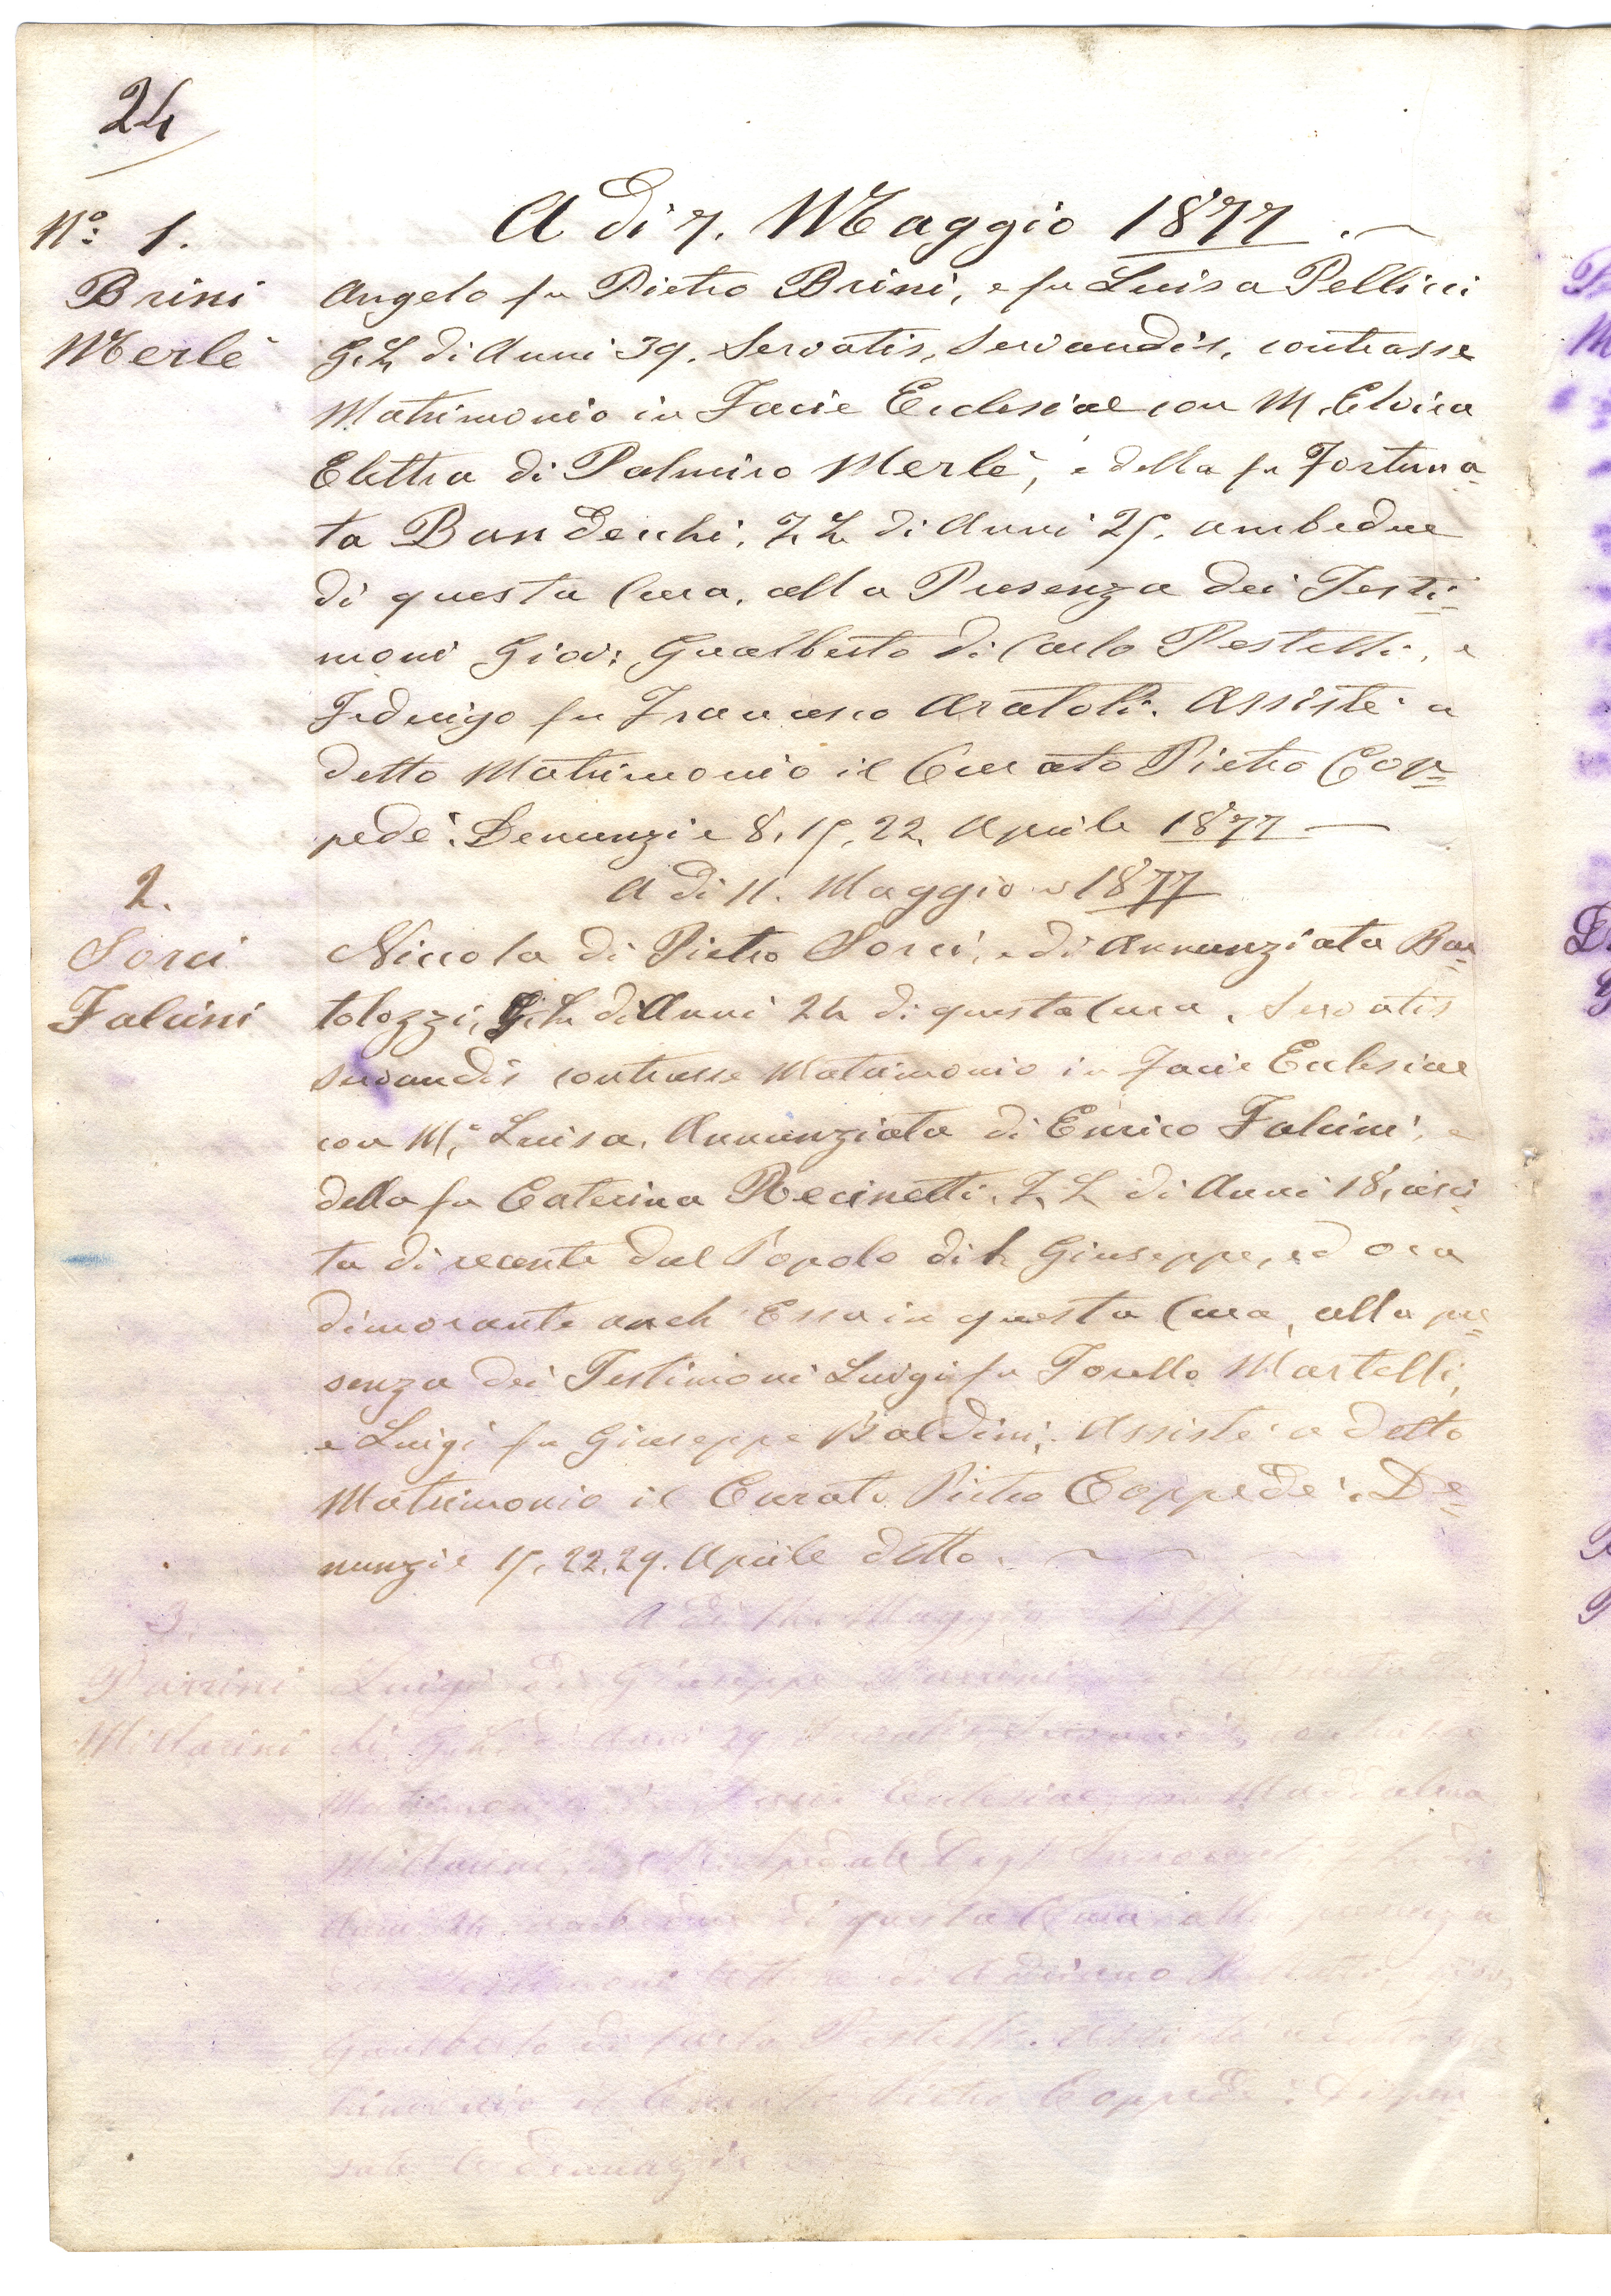 24
Nº: 1.
A dì 7. Maggio 1877.
Brini
Merlè
Angelo fu Pietro Brini, e fu Luisa Pellicci
G. L. di Anni 39. Servatis, Servandis, contrasse
Matrimonio in Facie Ecclesiae con M. Elvira
Elettra di Palmiro Merlè, e della fu Fortuna=
ta Bandecchi, Z. L. di Anni 25. ambedue
di questa Cura, alla Presenza dei Testi=
moni Giov: Gualberto di Carlo Pestelli, e
Federigo fu Francesco Aratoli. Assistè a
detto Matrimonio il Curato Pietro Cop=
pedè. Denunzie 8, 15, 22. Aprile 1877
2.
A dì 11. Maggio 1877
Sorci
Falcini
Niccola di Pietro Sorci, e di Annunziata Bar=
tolozzi, G. L. di Anni 24 di questa Cura, Servatis
servandis contrasse Matrimonio in Facie Ecclesiae
con M.ª Luisa, Annunziata di Enrico Falcini, e
della fu Caterina Recinetti, Z. L. di Anni 18, usci=
ta di recente dal Popolo di S. Giuseppe, ed ora
dimorante anch'Essa in questa Cura, alla pre=
senza dei Testimoni Luigi fu Torello Martelli,
e Luigi fu Giuseppe Baldini. Assistè a detto
Matrimonio il Curato Pietro Coppedè. De=
nunzie 15, 22, 29. Aprile detto.
3.
A dì Maggio 1877
Parrini
Millarini
Luigi di Giuseppe Parrini
di Anni 29 Servatis, Servandis, contrasse
Matrimonio in Facie Ecclesiae con Maddalena
Millarini
Anni 24 ambedue di questa Cura alla presenza
dei Testimoni Ettore di Adriano Giov.
Gualberto di Carlo Pestelli. Assistè a detto Ma
trimonio il Curato Pietro Coppedè. Dispen
sate le denunzie